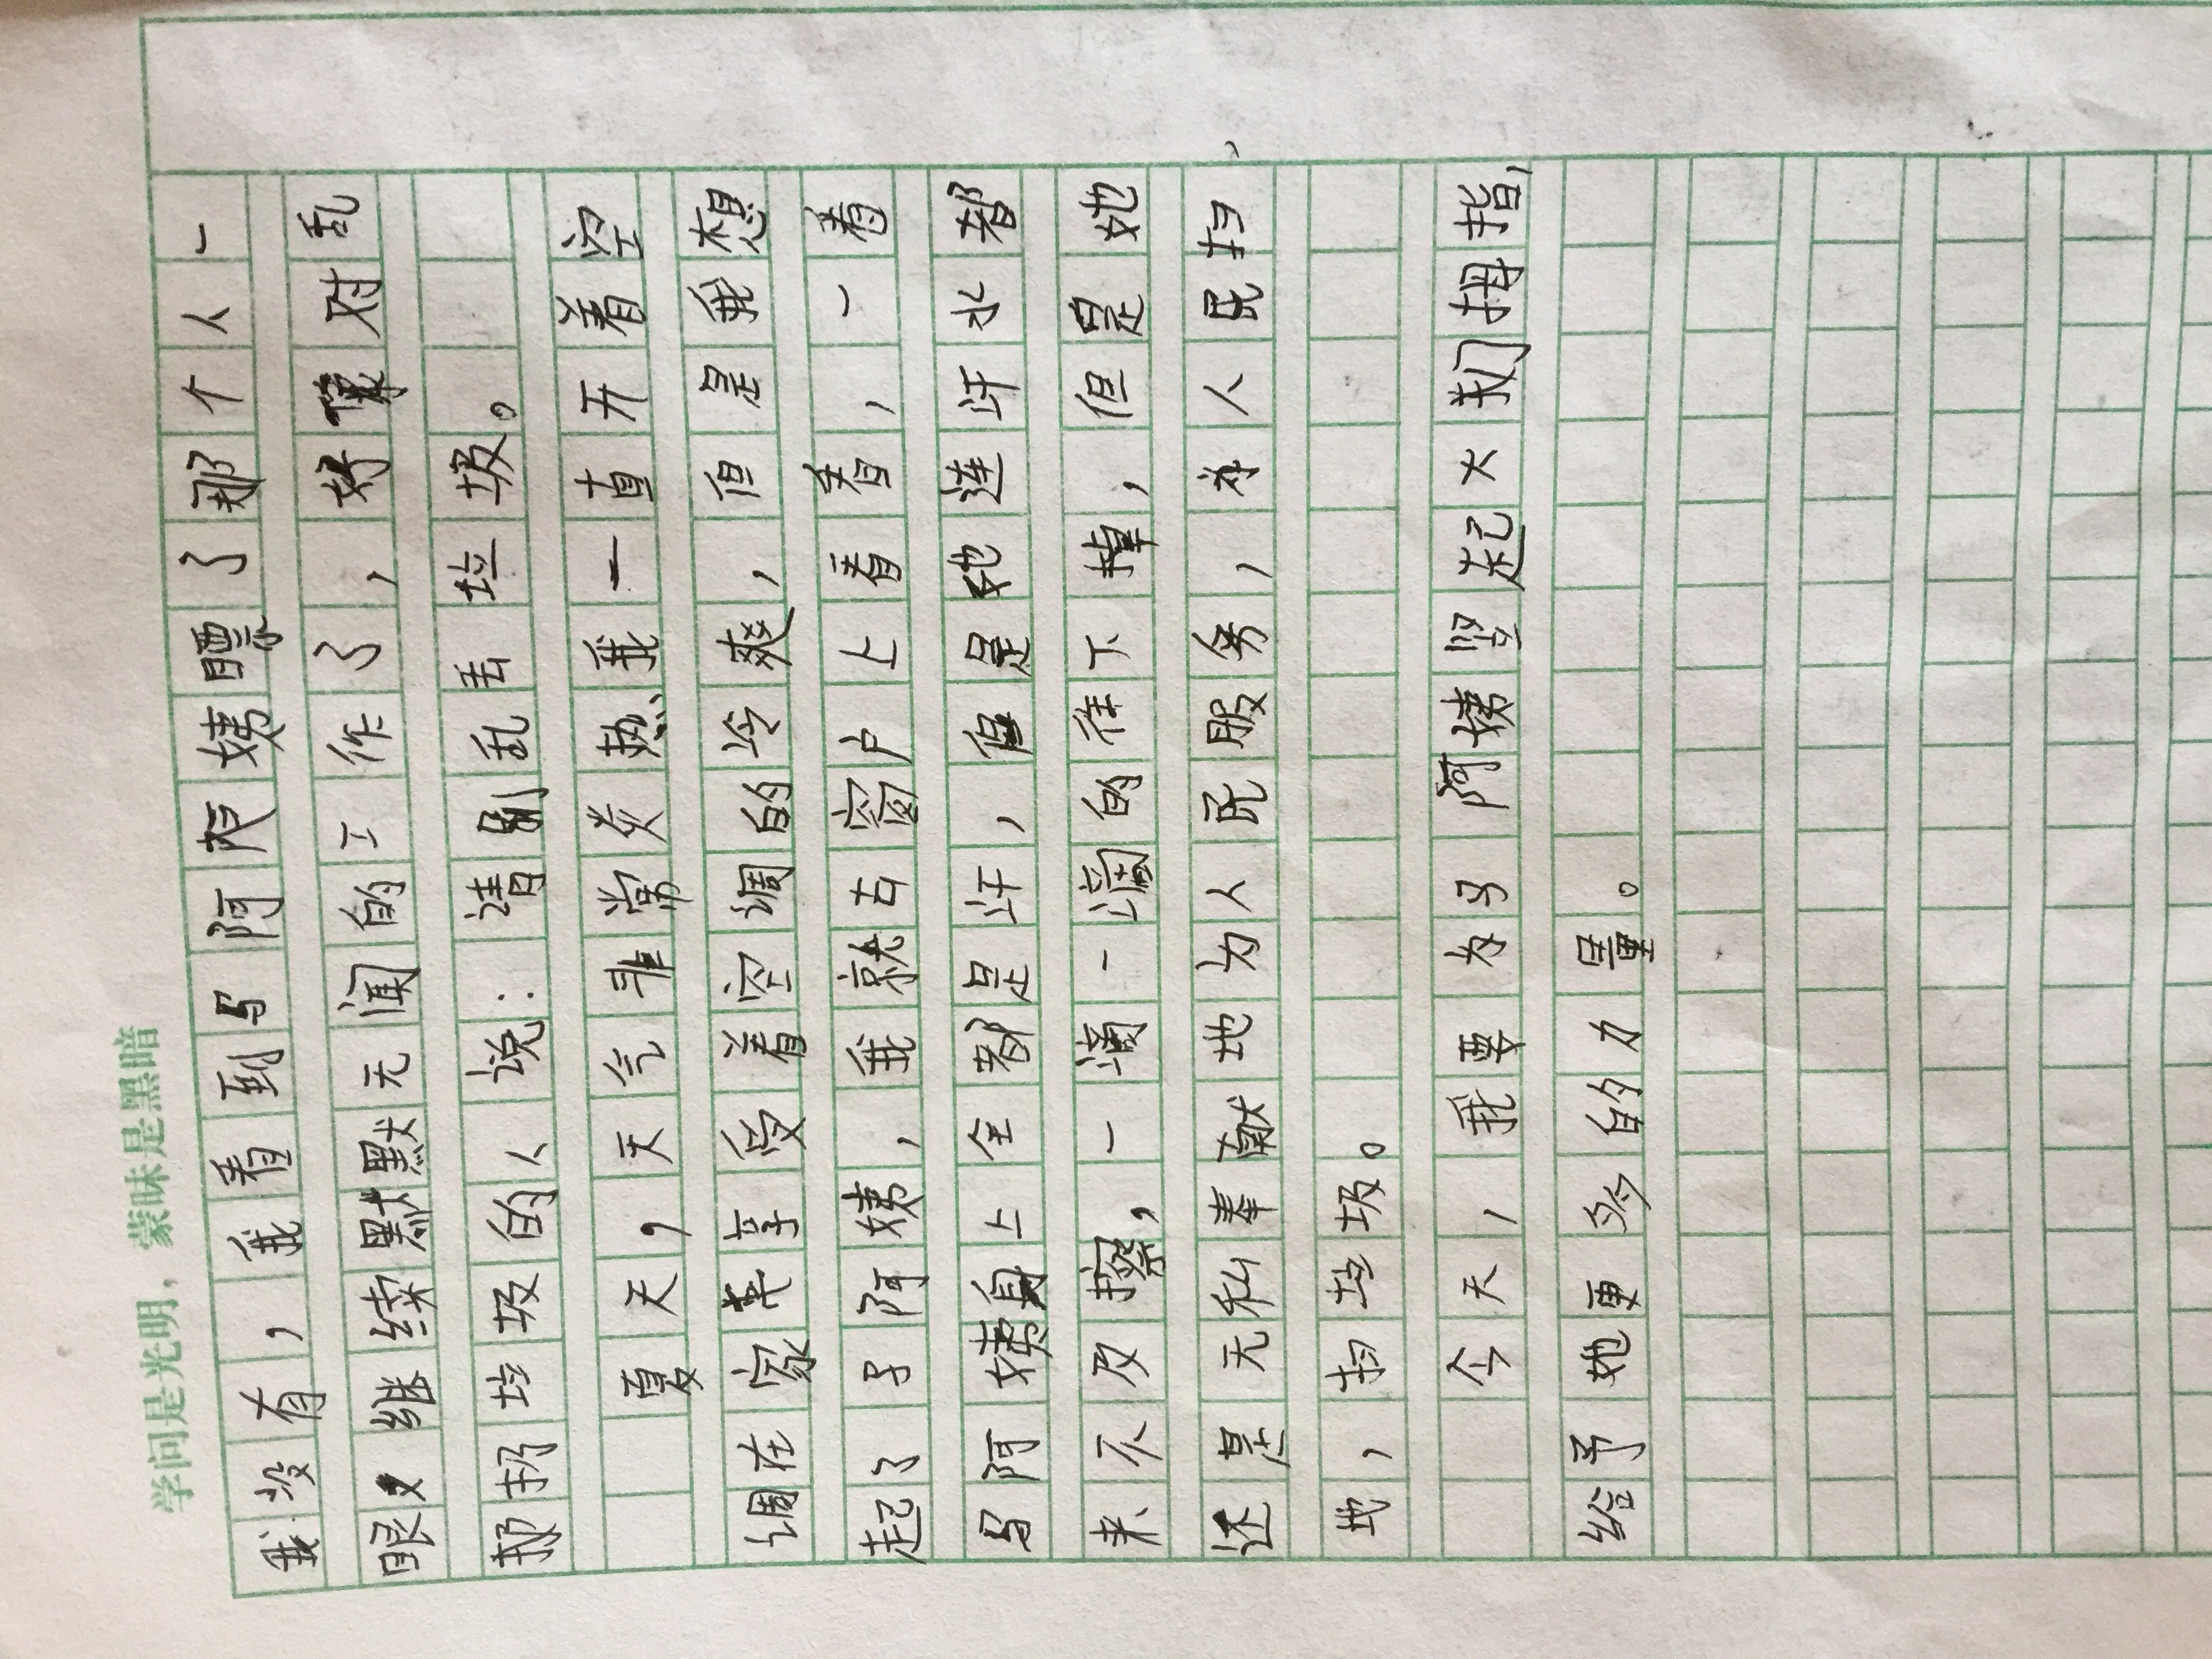 学问是光明，蒙昧是黑暗
我没有，我看到马阿姨瞟了那个人一
眼又继续默默无闻的工作了，好像对乱
扔垃圾的人说：请别乱丢垃圾。
夏天，天气非常炎热，我一直开着空
调在家享受着空调的冷爽，但是我想
起了子阿姨，我就占窗户上看看，一看
马阿姨身上全都是汗，但是她连汗水都
来不及擦，一滴一滴的往下掉，但是她
还是无私奉献地为人民服务，为人民扫
地，扫垃圾。
今天，我要为马阿姨竖起大我们拇指，
给予她更多的力量。